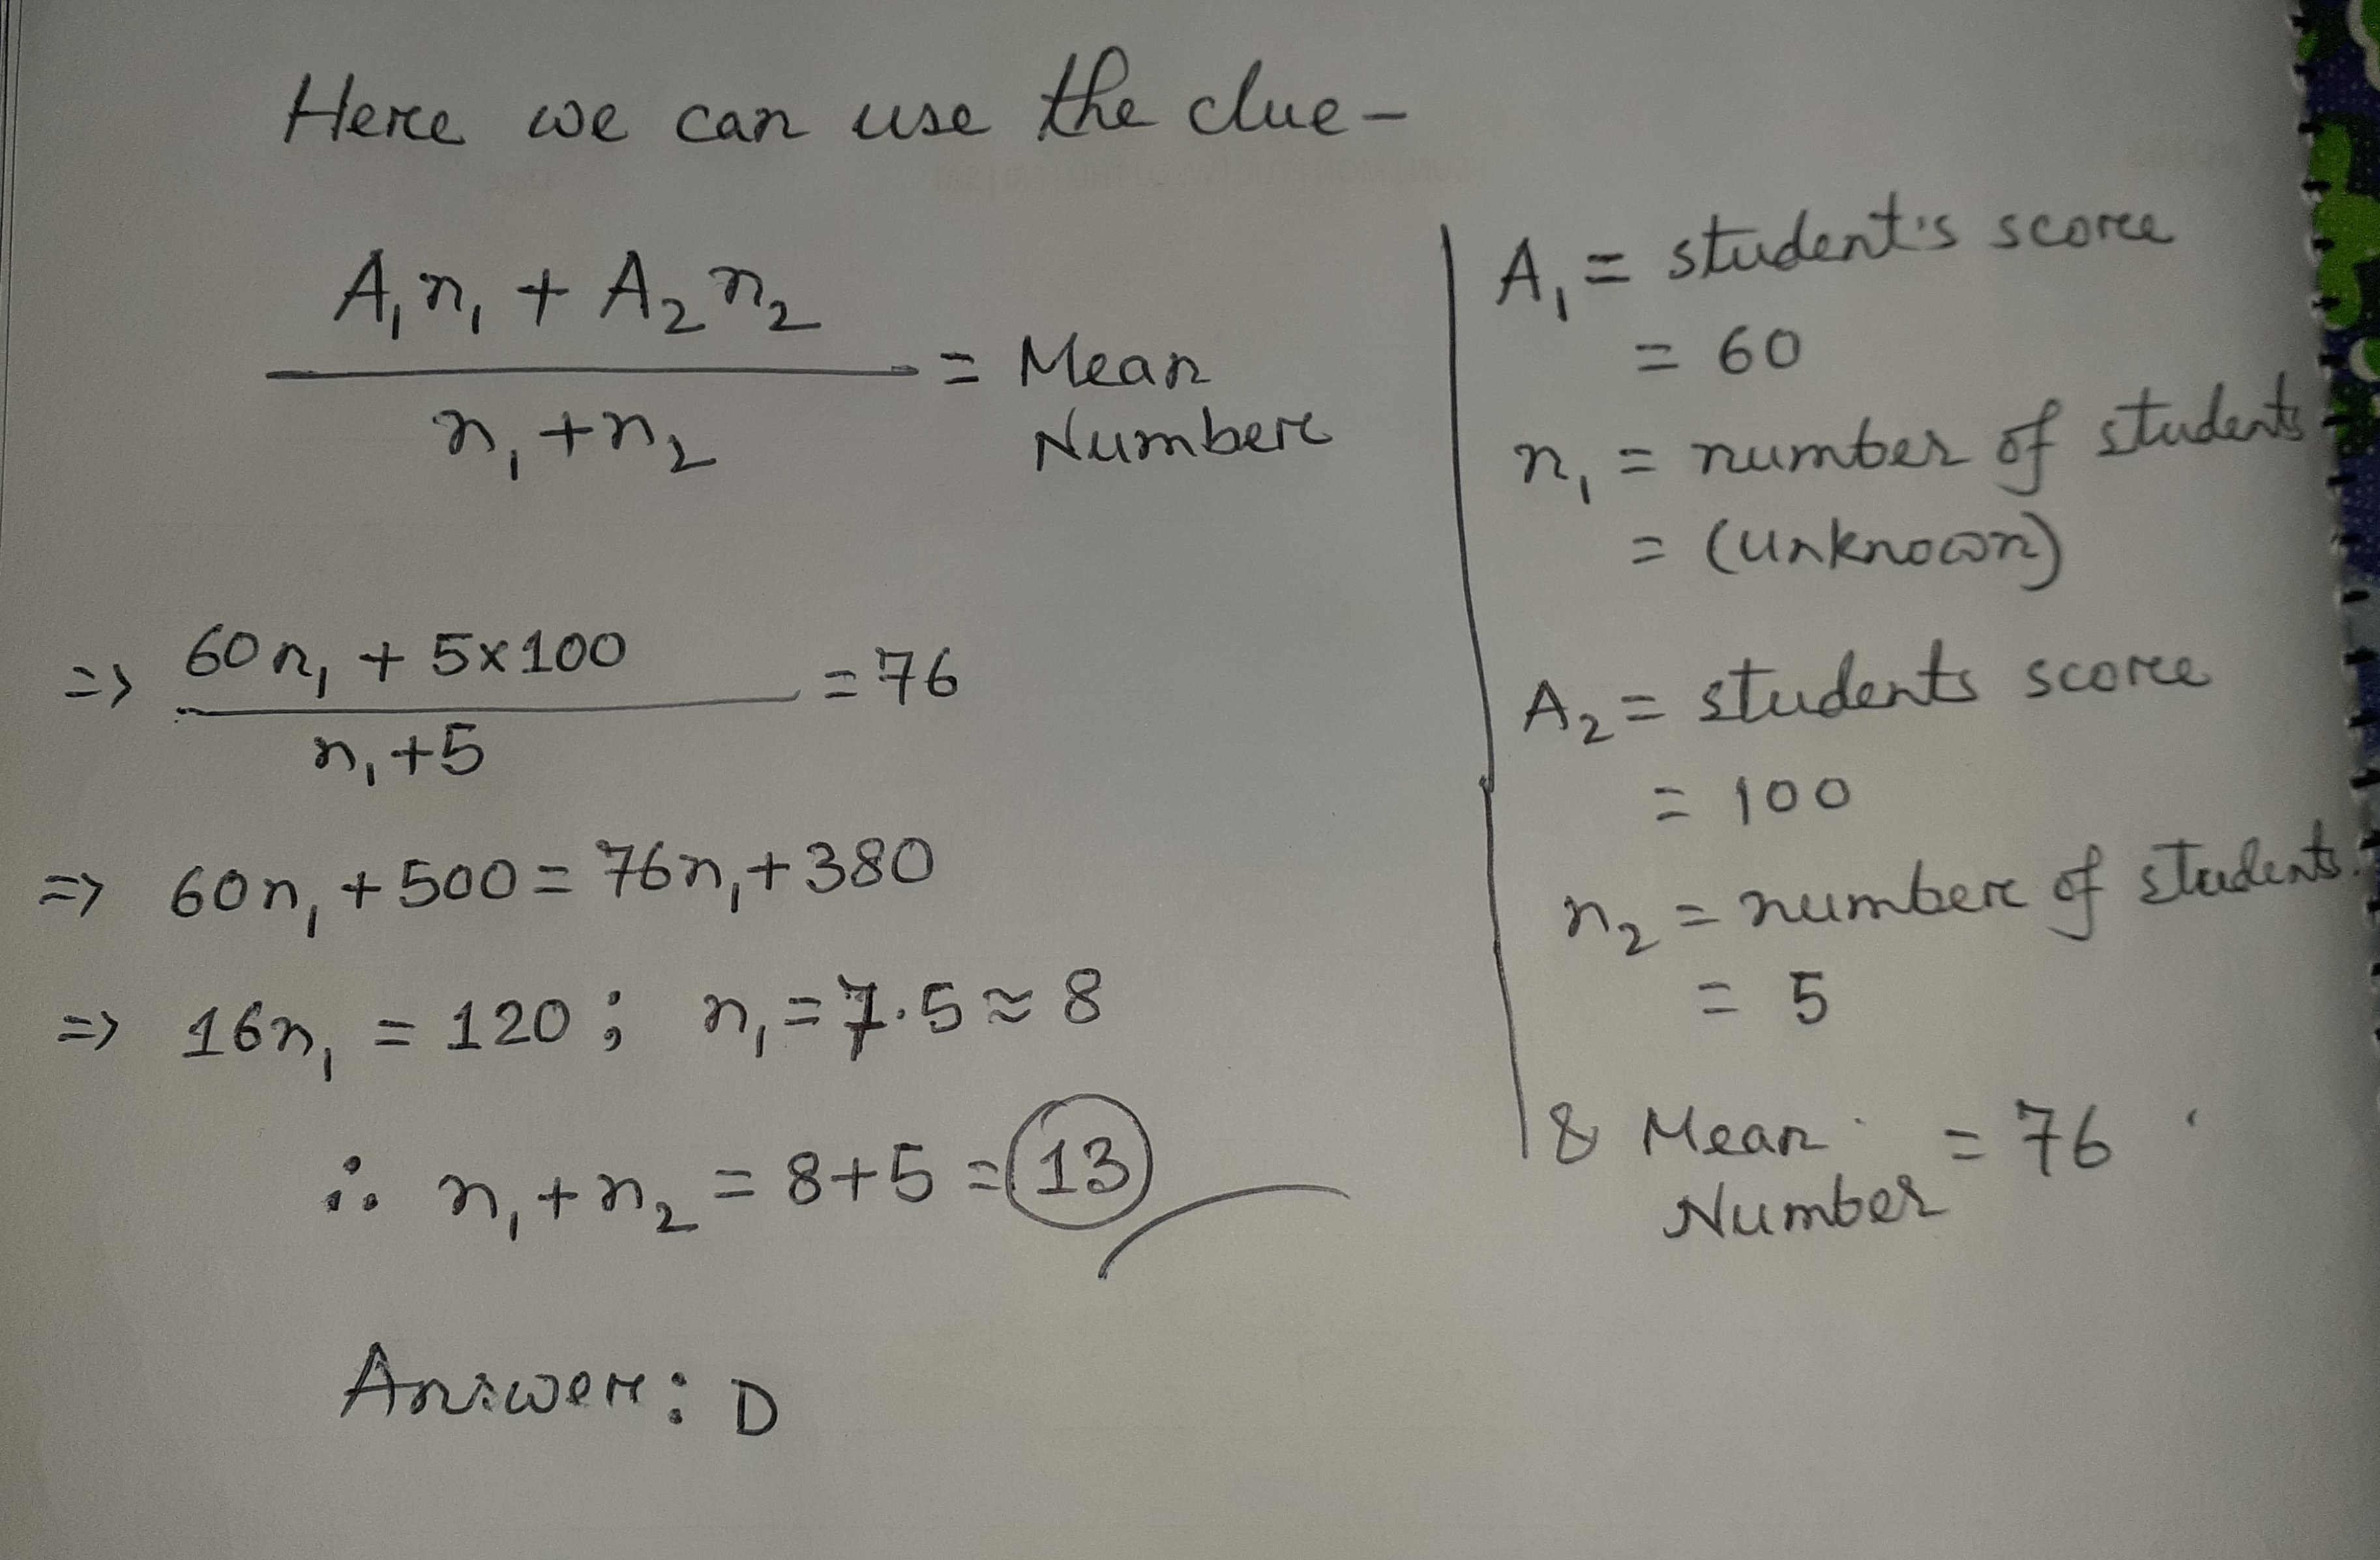 Here we can use the clue-
A₁n₁ + A₂n₂
n₁+n₂
= Mean
Number
=> 60n₁ + 5x100
n₁+5
=76
=> 60n₁ +500 = 76n₁+380
=> 16n₁ = 120 ; n₁ = 7.5 ≈ 8
∴ n₁+n₂ = 8+5 = 13
Answer: D
A₁ = student's score
= 60
n₁ = number of students
= (unknown)
A₂ = students score
= 100
n₂ = number of students.
= 5
& Mean
Number
= 76